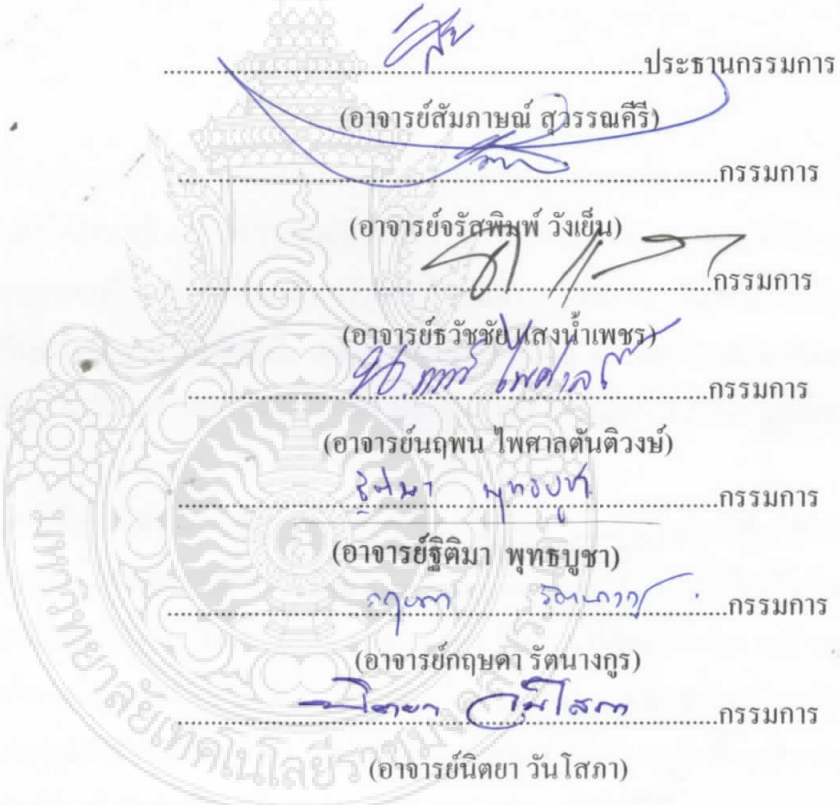 ประธานกรรมการ
(อาจารย์สัมภาษณ์ สุวรรณคีรี)
กรรมการ
(อาจารย์จรัสพิมพ์ วังเย็น)
กรรมการ
(อาจารย์ธวัชชัย แสงน้ำเพชร)
กรรมการ
(อาจารย์นฤพน ไพศาลตันติวงษ์)
ฐิติมา พุทธบูชา กรรมการ
(อาจารย์ฐิติมา พุทธบูชา)
กฤษดา รัตนางกูร กรรมการ
(อาจารย์กฤษดา รัตนางกูร)
นิตยา วันโสภา กรรมการ
(อาจารย์นิตยา วันโสภา)
มหาวิทยาลัยเทคโนโลยีราชมงคล